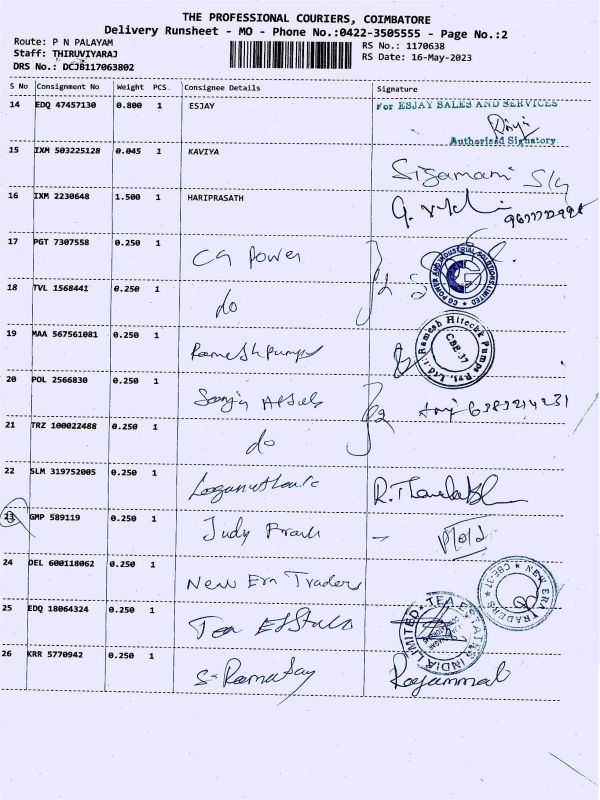 THE PROFESSIONAL COURIERS, COIMBATORE
Delivery Runsheet - MO - Phone No.:0422-3505555 - Page No.:2
Route: P N PALAYAM
Staff: THIRUVIYARAJ
DRS No.: DCJB117063802
RS No.: 1170638
RS Date: 16-May-2023
S No Consignment No Weight PCS Consignee Details Signature
14 EDQ 47457130 0.800 1 ESJAY For ESJAY SALES AND SERVICES
Authorised Signatory
15 IXM 503225128 0.045 1 KAVIYA Sigamani S/g
16 IXM 2230648 1.500 1 HARIPRASATH
17 PGT 7307558 0.250 1 CG Power
CG POWER AND INDUSTRIAL SOLUTIONS LIMITED
18 TVL 1568441 0.250 1 do
19 MAA 567561081 0.250 1 Ramesh pumps
Ramesh Hitechk Pumps Pvt. Ltd. CBE-37
20 POL 2566830 0.250 1 6383214231
21 TRZ 100022488 0.250 1 do
22 SLM 319752005 0.250 1
23 GMP 589119 0.250 1 Judy Frank -
24 DEL 600118062 0.250 1 New Era Traders
NEW ERA TRADERS CBE-31
25 EDQ 18064324 0.250 1 Tea Estates
TEA ESTATES INDIA LIMITED
26 KRR 5770942 0.250 1 S-Ramasay Rajammal